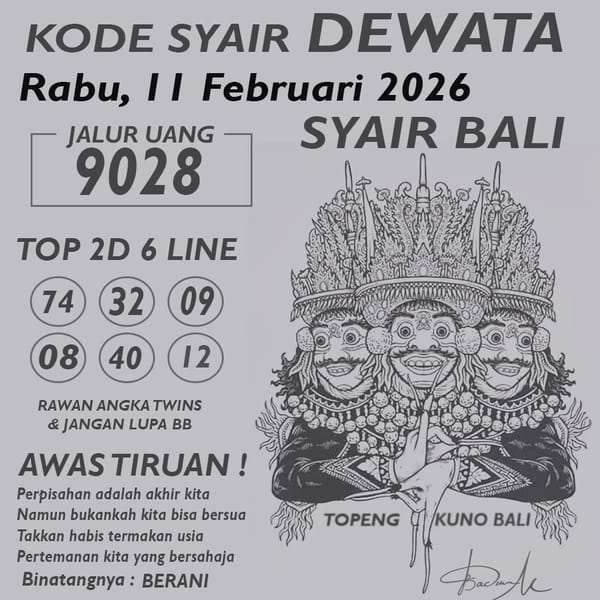 KODE SYAIR DEWATA
Rabu, 11 Februari 2026
SYAIR BALI
JALUR UANG
9028
TOP 2D 6 LINE
74 32 09
08 40 12
RAWAN ANGKA TWINS
& JANGAN LUPA BB
AWAS TIRUAN !
Perpisahan adalah akhir kita
Namun bukankah kita bisa bersua
Takkan habis termakan usia
Pertemanan kita yang bersahaja
Binatangnya : BERANI
TOPENG KUNO BALI